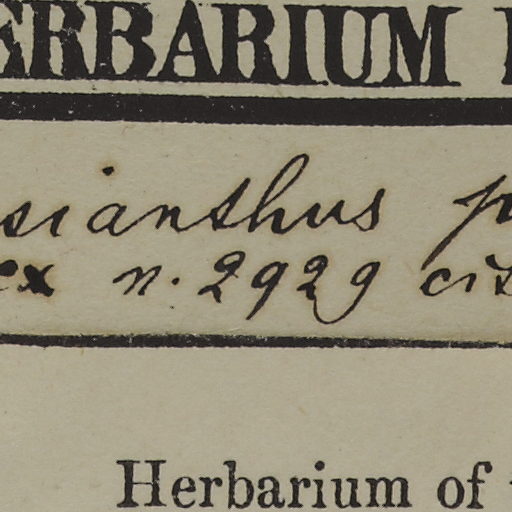 ERBARIUM
sianthus p
ex n. 2929 cis
Herbarium of